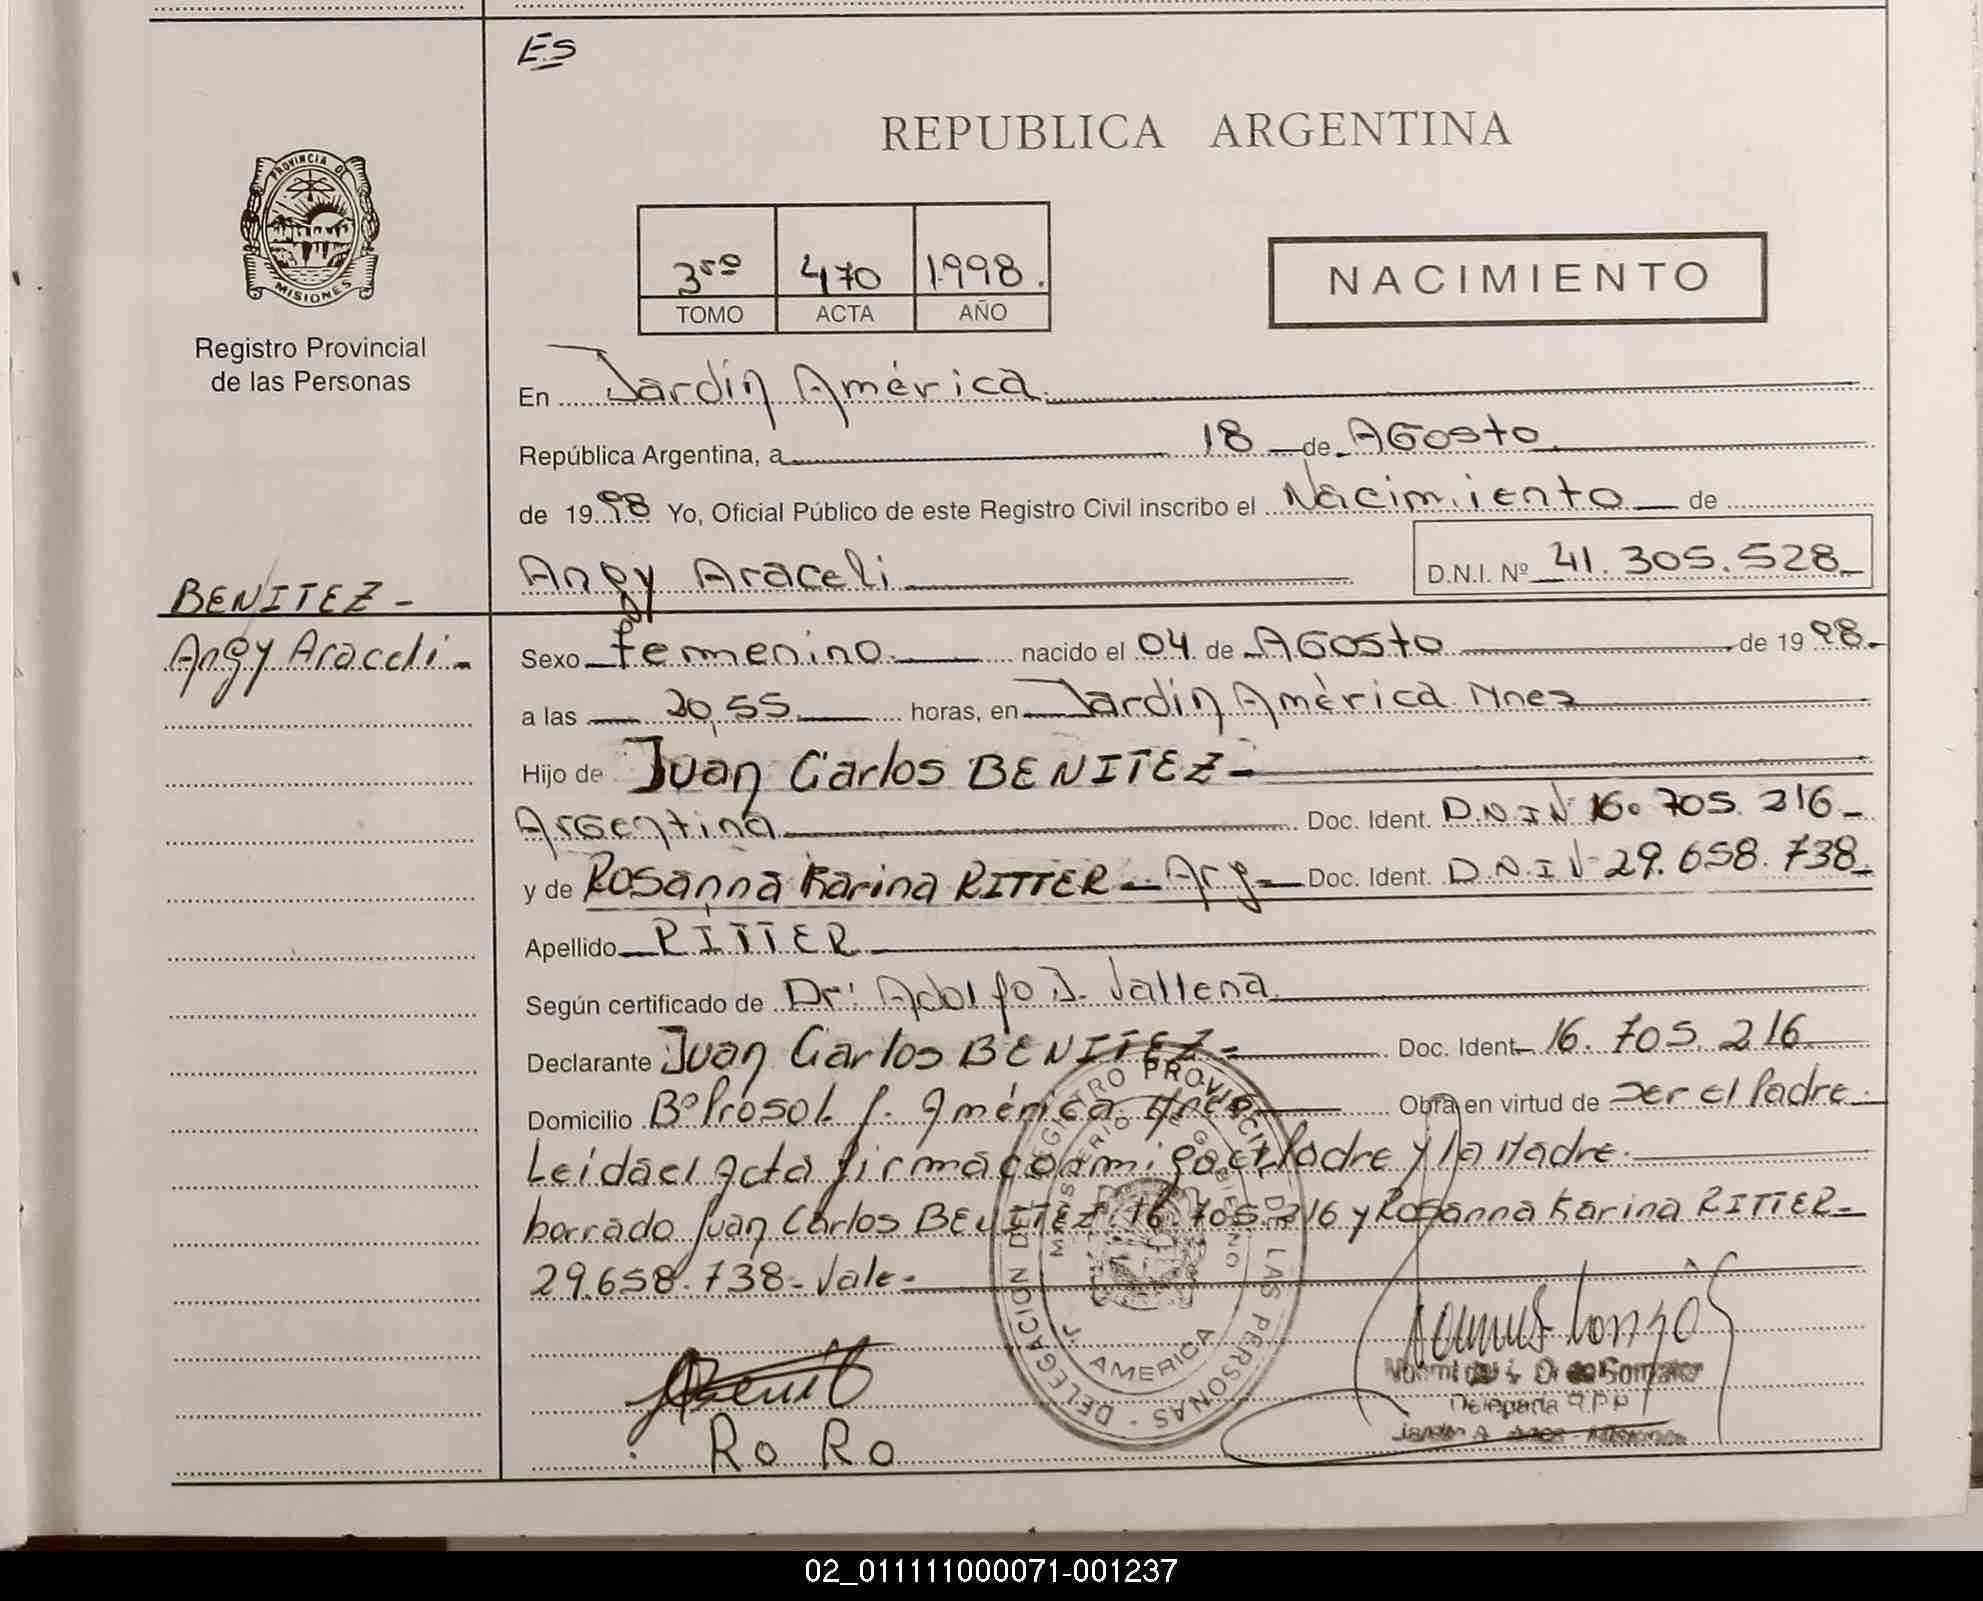 Es
REPUBLICA ARGENTINA
PROVINCIA DE
MISIONES
Registro Provincial
de las Personas
3ro 470 1998.
TOMO ACTA AÑO
NACIMIENTO
En Jardín América
República Argentina, a 18 de Agosto
de 1998 Yo, Oficial Público de este Registro Civil inscribo el Nacimiento de
Angy Araceli D.N.I. Nº 41.305.528
BENITEZ -
Angy Araceli -
Sexo femenino nacido el 04 de Agosto de 1998.
a las 20,55 horas, en Jardín América Mnes
Hijo de Juan Carlos BENITEZ -
Argentina Doc. Ident. D.N.I Nº 16.705.216
y de Rosanna Karina RITTER - Arg - Doc. Ident. D.N.I Nº 29.658.738
Apellido RITTER
Según certificado de Dr. Adolfo D. Vallena
Declarante Juan Carlos BENITEZ - Doc. Ident 16.705.216
Domicilio Bº Prosol J. América Mnes Obra en virtud de ser el Padre
Leída el Acta firma conmigo el Padre y la Madre.
borrado Juan Carlos BENITEZ 16.705.216 y Rosanna Karina RITTER -
29.658.738 - Vale -
DELEGACION DEL REGISTRO PROVINCIAL DE LAS PERSONAS -
MINISTERIO DE GOBIERNO
J. AMERICA
Ro Ro
Delegada R.P.P
02_011111000071-001237